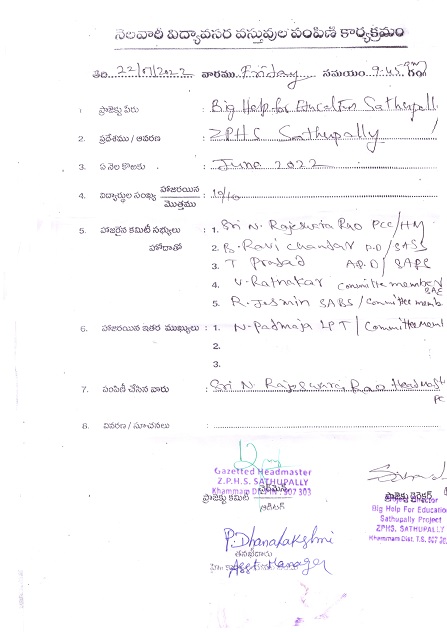 నెలవారీ విద్యావసర వస్తువుల పంపిణీ కార్యక్రమం
తేది 22/7/2022 వారము Friday సమయం 9-45 గం
1. ప్రాజెక్టు పేరు : Big Help for Education Sathupally
2. ప్రదేశము / ఆవరణ : ZPHS Sathupally
3. ఏ నెల కొఱకు : June 2022
4. విద్యార్థుల సంఖ్య హాజరయిన / మొత్తము : 10/10
5. హాజరైన కమిటీ సభ్యులు : 1. Sri N. Rajeswara Rao PCC/HM
హోదాతో 2. B. Ravi Chandar P.D/SASS
3. T Prasad A.P.D/
4. V. Ratnakar Committee member
5. R. Jasmin SABS/Committee memb.
6. హాజరయిన ఇతర ముఖ్యులు : 1. N. Padmaja LPT/Committee
2.
3.
7. పంపిణీ చేసిన వారు : Sri N. Rajeswara Rao Headmast
PC
8. వివరణ / సూచనలు :
Gazetted Headmaster
Z.P.H.S. SATHUPALLY
Khammam Dt. PIN 507 303
ప్రాజెక్టు కమిటీ చైర్మన్
ఆడిటర్
ప్రాజెక్టు డైరెక్టర్
Project Director
Big Help For Education
Sathupally Project
ZPHS. SATHUPALLY
Khammam Dist. T.S. 507 30
P. Dhanalakshmi
Asst Manager